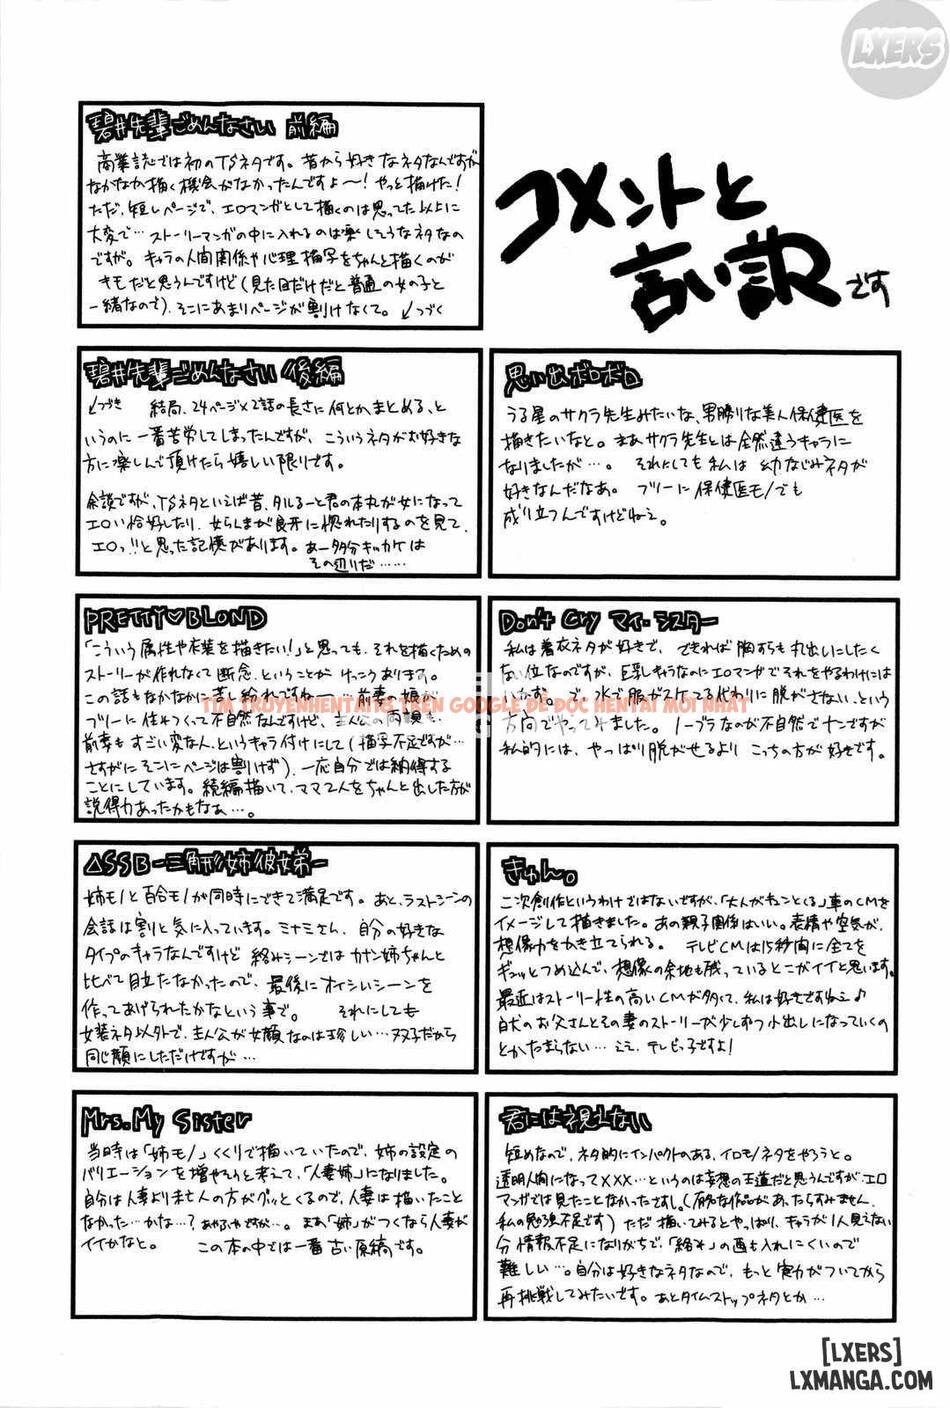 LXERS
コメントと
言い訳です
碧井先輩ごめんなさい 前編
商業誌では初のTSネタです。昔から好きなネタなんですが
なかなか描く機会がなかったんですよ〜!やっと描けた!
ただ、短いページで、エロマンガとして描くのは思ってた以上に
大変で…ストーリーマンガの中に入れるのは楽しそうなネタなの
ですが。キャラの人間関係や心理描写をちゃんと描くのが
キモだと思うんですけど(見た目だけだと普通の女の子と
一緒なので)、そこにあまりページが割けなくて。↙つづく
碧井先輩ごめんなさい 後編
↙つづき 結局、24ページ×2話の長さに何とかまとめる、と
いうのに一番苦労してしまったんですが、こういうネタがお好きな
方に楽しんで頂けたら嬉しい限りです。
余談ですが、TSネタといえば昔、タルるート君の本丸が女になって
エロい格好したり、女らんまが良牙に惚れたりするのを見て、
エロっ!!と思った記憶があります。あー多分キッカケは
その辺りだ……
思い出ボロボロ
うる星のサクラ先生みたいな、男勝りな美人保健医を
描きたいなと。まあサクラ先生とは全然違うキャラに
なりましたが…。それにしても私は幼なじみネタが
好きなんだなあ。フツーに保健医モノでも
成り立つんですけどねえ。
PRETTY♡BLOND
「こういう属性や衣装を描きたい!」と思っても、それを描くための
ストーリーが作れなくて断念、ということがけっこうあります。
この話もなかなか苦し紛れですねー…前妻の娘が
フツーに住みつくって不自然なんですけど、主人公の両親も、
前妻もすごい変な人、というキャラ付けにして(描写不足ですが…
さすがにそこにページは割けず)、一応自分では納得する
ことにしています。続編描いて、ママ2人をちゃんと出した方が
説得力あったかもなあ…。
Don't Cry マイ・シスター
私は着衣ネタが好きで、できれば胸すらも丸出しにしたく
ない位なのですが、巨乳キャラなのにエロマンガでそれをやるわけには
いかず。で、水で服がスケてる代わりに脱がさない、という
方向でやってみました。ノーブラなのが不自然でナンですが
私的には、やっぱり脱がせるよりこっちの方が好きです。
TÌM TRUYENHENTAI18 TRÊN GOOGLE ĐỂ ĐỌC HENTAI MỚI NHẤT
△SSB-三角形姉彼女弟-
姉モノと百合モノが同時にできて満足です。あと、ラストシーンの
会話は割と気に入っています。ミナミさん、自分の好きな
タイプのキャラなんですけど絡みシーンではカナン姉ちゃんと
比べて目立たなかったので、最後にオイシイシーンを
作ってあげられたかなという事で。それにしても
女装ネタ以外で、主人公が女顔なのは珍しい…双子だから
同じ顔にしただけですが…
きゅん。
二次創作というわけではないですが、「大人がキュンとくる」車のCMを
イメージして描きました。あの親子関係はいい。表情や空気が、
想像力をかき立てられる。テレビCMは15秒間に全てを
ギュッとつめ込んで、想像の余地も残っているとこがイイと思います。
最近はストーリー性の高いCMが多くて、私は好きですねえ♪
白犬のお父さんとその妻のストーリーが少しずつ小出しになっていくの
とかたまらない…ええ、テレビっ子ですよ!
Mrs. My Sister
当時は「姉モノ」くくりで描いていたので、姉の設定の
バリエーションを増やそうと考えて、「人妻姉」になりました。
自分は人妻より未亡人の方がグッとくるので、人妻は描いたこと
なかった…かな…?あやふやですが…。まあ「姉」がつくなら人妻が
イイかなと。この本の中では一番古い原稿です。
君には視えない
短めなので、ネタ的にインパクトのある、イロモノネタをやろうと。
透明人間になって×××…というのは妄想の王道だと思うんですが、エロ
マンガでは見たことなかったですし。(有名な作品があったらすみません、
私の勉強不足です)ただ描いてみるとやっぱり、キャラが1人見えない
分情報不足になりがちで、「絡み」の画も入れにくいので
難しい…。自分は好きなネタなので、もっと実力がついてから
再挑戦してみたいです。あとタイムストップネタとか…
[LXERS]
LXMANGA.COM